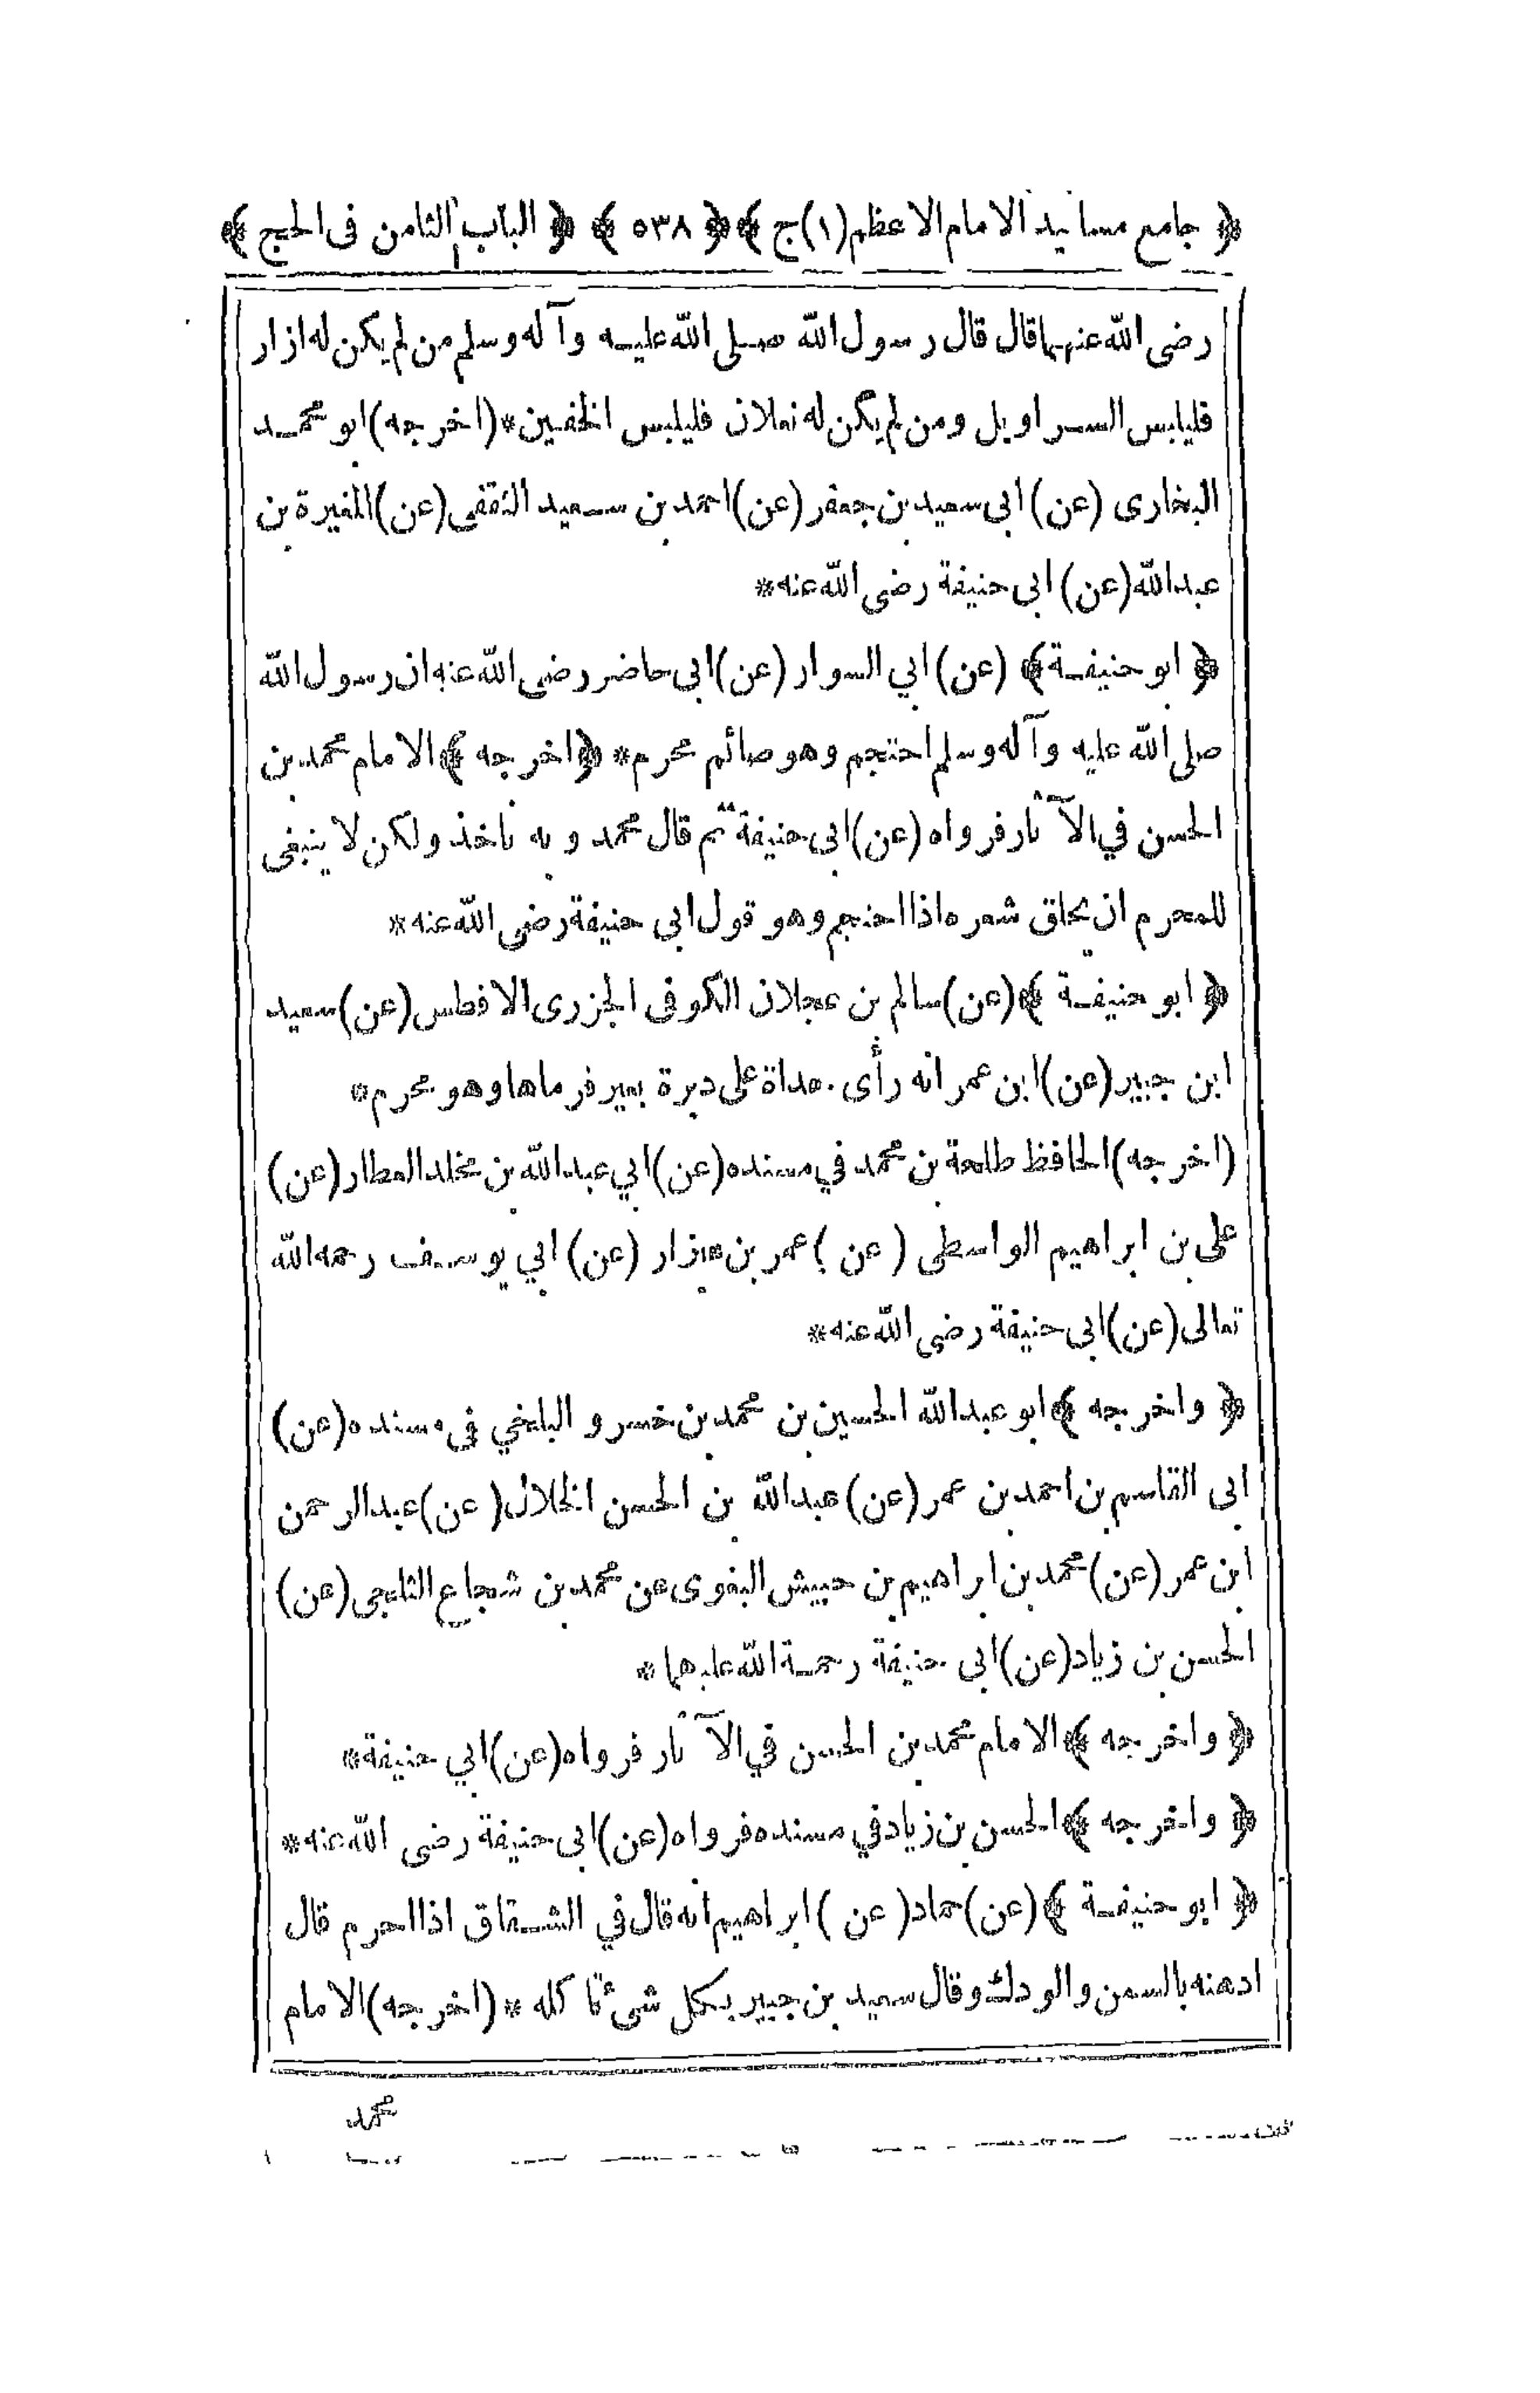 ﴿ جامع مسانيد الامام الاعظم(١)ج ﴾ ﴿ ٥٣٨ ﴾ ﴿ الباب الثامن فى الحج ﴾
رضى الله عنهما قال قال رسول الله صلى الله عليه وآله وسلم من لم يكن له ازار
فليلبس السراويل ومن لم يكن له نعلان فليلبس الخفين*(اخرجه)ابو محمد
البخارى (عن) ابى سعيد بن جعفر (عن)احمد بن سعيد الثقفى(عن)المغيرة بن
عبدالله(عن) ابى حنيفة رضى الله عنه*
﴿ ابو حنيفة﴾ (عن) ابي السوار (عن)ابى حاضر رضى الله عنه ان رسول الله
صلى الله عليه وآله وسلم احتجم وهو صائم محرم* ﴿اخرجه ﴾الامام محمد بن
الحسن في الآثار فرواه (عن)ابى حنيفة ثم قال محمد وبه ناخذ ولكن لا ينبغى
للمحرم ان يحلق شعره اذا احتجم وهو قول ابى حنيفة رضى الله عنه*
﴿ ابو حنيفة ﴾(عن)سالم بن عجلان الكوفى الجزرى الافطس(عن)سعيد
ابن جبير(عن)ابن عمر انه رأى حداة على دبرة بعير فرماها وهو محرم*
(اخرجه)الحافظ طلحة بن محمد في مسنده(عن)ابي عبدالله بن مخلد العطار(عن)
على بن ابراهيم الواسطى (عن) عمر بن عزار (عن) ابي يوسف رحمه الله
تعالى(عن)ابى حنيفة رضى الله عنه*
﴿ واخرجه ﴾ابو عبدالله الحسين بن محمد بن خسرو البلخي فى مسنده(عن)
ابى القاسم بن احمد بن عمر (عن) عبدالله بن الحسن الخلال(عن)عبدالرحمن
ابن عمر (عن)محمد بن ابراهيم بن حبيش البغوى عن محمد بن شجاع الثلجى(عن)
الحسن بن زياد(عن)ابى حنيفة رحمة الله عليهما*
﴿ واخرجه ﴾الامام محمد بن الحسن في الآثار فرواه(عن)ابي حنيفة*
﴿ واخرجه ﴾الحسن بن زياد في مسنده فرواه(عن)ابى حنيفة رضى الله عنه*
﴿ ابو حنيفة ﴾(عن)حماد(عن)ابراهيم انه قال في الشقاق اذا احرم قال
ادهنه بالسمن والودك وقال سعيد بن جبير بكل شئ تأكله *(اخرجه)الامام
محمد